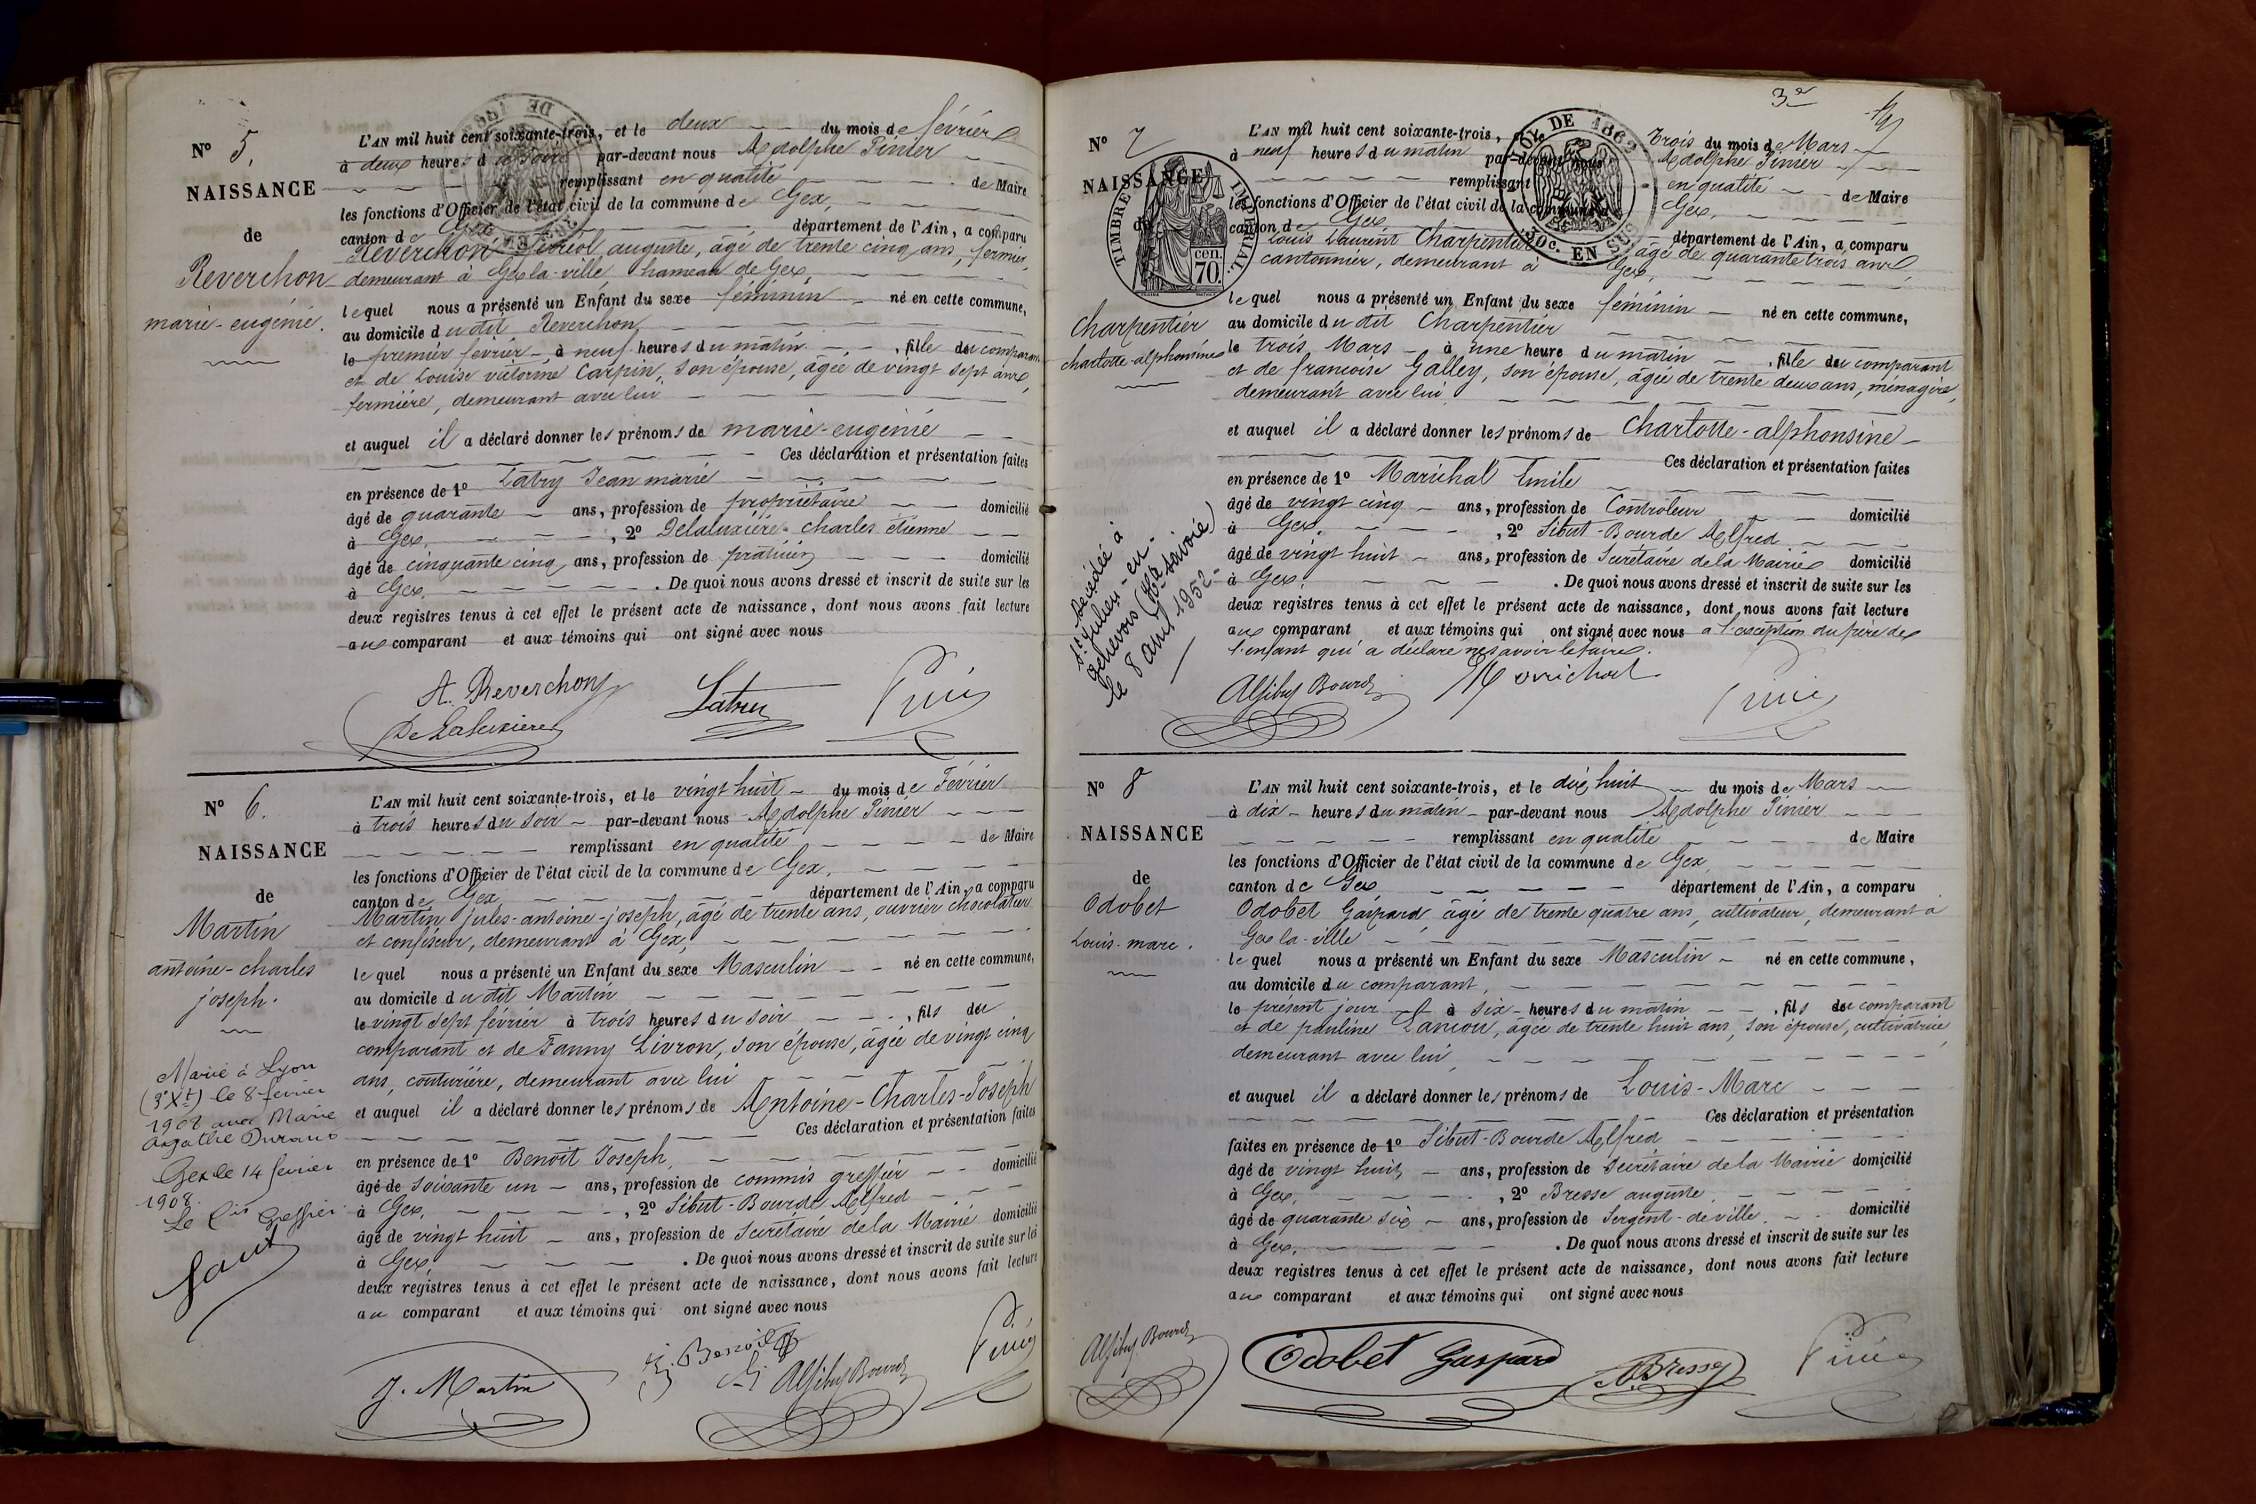 N° 5.
NAISSANCE
de
Reverchon
marie-eugénie.
L'AN mil huit cent soixante-trois, et le deux du mois de février
à deux heures du soir par-devant nous Adolphe Pinier
remplissant en qualité de Maire
les fonctions d'Officier de l'état civil de la commune de Gex,
canton de Gex département de l'Ain, a comparu
Reverchon auguste, âgé de trente cinq ans, fermier,
demeurant à Gex la-ville, hameau de Gex,
lequel nous a présenté un Enfant du sexe féminin né en cette commune,
au domicile du dit Reverchon,
le premier février à neuf heures du matin, fille du comparant
et de Louise victorine Carpin, son épouse, âgée de vingt sept ans,
fermière, demeurant avec lui
et auquel il a déclaré donner les prénoms de marie-eugénie
Ces déclaration et présentation faites
en présence de 1° Latry Jean marie
âgé de quarante ans, profession de propriétaire domicilié
à Gex, 2° Delaluxière charles étienne
âgé de cinquante cinq ans, profession de praticien domicilié
à Gex. De quoi nous avons dressé et inscrit de suite sur les
deux registres tenus à cet effet le présent acte de naissance, dont nous avons fait lecture
aux comparant et aux témoins qui ont signé avec nous
A. Reverchon
De Laluxiere
N° 6.
NAISSANCE
de
Martin
antoine-charles
joseph.
Marié à Lyon
(3e Xt) le 8 février
1908 avec Marie
Agathe Durand
Gex le 14 février
1908.
Le Cis Greffier
L'AN mil huit cent soixante-trois, et le vingt huit du mois de Février
à trois heures du soir par-devant nous Adolphe Pinier
remplissant en qualité de Maire
les fonctions d'Officier de l'état civil de la commune de Gex,
canton de Gex département de l'Ain, a comparu
Martin jules-antoine-joseph, âgé de trente ans, ouvrier chocolatier
et confiseur, demeurant à Gex,
lequel nous a présenté un Enfant du sexe Masculin né en cette commune,
au domicile du dit Martin
le vingt sept février à trois heures du soir, fils du
comparant et de Fanny Livron, son épouse, âgée de vingt cinq
ans, couturière, demeurant avec lui
et auquel il a déclaré donner les prénoms de Antoine-Charles-Joseph
Ces déclaration et présentation faites
en présence de 1° Benoît Joseph,
âgé de soixante un ans, profession de commis greffier domicilié
à Gex, 2° Sibut-Bourde Alfred
âgé de vingt huit ans, profession de Secrétaire de la Mairie domicilié
à Gex. De quoi nous avons dressé et inscrit de suite sur les
deux registres tenus à cet effet le présent acte de naissance, dont nous avons fait lecture
au comparant et aux témoins qui ont signé avec nous
J. Martin
J. Benoit
3e
N° 7
NAISSANCE
TIMBRE IMPERIAL
cen. 70
LOI DE 1862
30c. EN SUS
Charpentier
charlotte-alphonsine
décédée à
St. Julien-en-
Genevois (Hte Savoie)
le 8 avril 1952
L'AN mil huit cent soixante-trois, et le trois du mois de Mars
à neuf heures du matin par-devant nous Adolphe Pinier
remplissant en qualité de Maire
les fonctions d'Officier de l'état civil de la commune de Gex,
canton de Gex, département de l'Ain, a comparu
Louis Laurent Charpentier âgé de quarante trois ans,
cantonnier, demeurant à Gex,
lequel nous a présenté un Enfant du sexe féminin né en cette commune,
au domicile du dit Charpentier
le trois Mars à une heure du matin, fille du comparant
et de francoise Galley, son épouse, âgée de trente deux ans, ménagère,
demeurant avec lui
et auquel il a déclaré donner les prénoms de Charlotte-alphonsine
Ces déclaration et présentation faites
en présence de 1° Maréchal Emile
âgé de vingt cinq ans, profession de Controleur domicilié
à Gex, 2° Sibut-Bourde Alfred
âgé de vingt huit ans, profession de Secrétaire de la Mairie domicilié
à Gex. De quoi nous avons dressé et inscrit de suite sur les
deux registres tenus à cet effet le présent acte de naissance, dont nous avons fait lecture
aux comparant et aux témoins qui ont signé avec nous a l'exception du père de
l'enfant qui a déclaré ne savoir le faire.
N° 8
NAISSANCE
de
Odobet
Louis-marc.
L'AN mil huit cent soixante-trois, et le dix huit du mois de Mars
à dix heures du matin par-devant nous Adolphe Pinier
remplissant en qualité de Maire
les fonctions d'Officier de l'état civil de la commune de Gex
canton de Gex département de l'Ain, a comparu
Odobet Gaspard âgé de trente quatre ans, cultivateur, demeurant à
Gex la-ville
lequel nous a présenté un Enfant du sexe Masculin né en cette commune,
au domicile du comparant,
le présent jour à six heures du matin, fils du comparant
et de pauline Lançon, âgée de trente huit ans, son épouse, cultivatrice
demeurant avec lui,
et auquel il a déclaré donner les prénoms de Louis-Marc
Ces déclaration et présentation
faites en présence de 1° Sibut-Bourde Alfred
âgé de vingt huit ans, profession de Secrétaire de la Mairie domicilié
à Gex, 2° Bresse auguste,
âgé de quarante six ans, profession de Sergent-de-ville, domicilié
à Gex. De quoi nous avons dressé et inscrit de suite sur les
deux registres tenus à cet effet le présent acte de naissance, dont nous avons fait lecture
aux comparant et aux témoins qui ont signé avec nous
Odobet Gaspard
A. Bresse